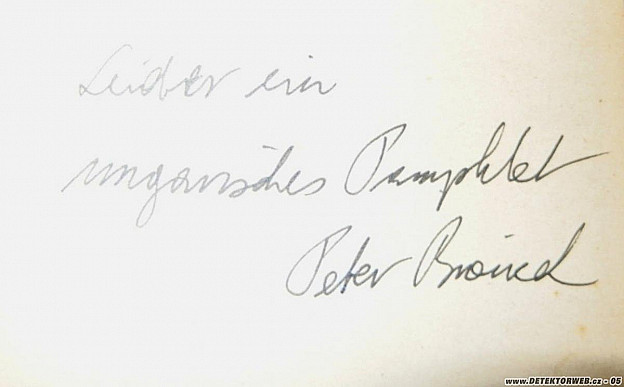 Leider ein
ungarisches Pamphlet
Peter
www.DETEKTORWEB.cz - 05